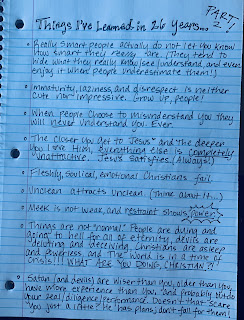 PART 2
Things I've Learned in 26 Years...
• Really smart people actually do not let you know
how smart they really are. (They tend to
hide what they really know/see/understand, and even
enjoy it when people underestimate them!)
• Immaturity, laziness, and disrespect is neither
cute nor impressive. Grow up, people!
• When people choose to misunderstand you they
will never understand you. Ever.
• The closer you get to Jesus and the deeper
you love Him, everything else is completely
unattractive. Jesus satisfies. (Always!)
• Fleshly, soulical, emotional Christians fail.
• Unclean attracts unclean. (Think about it...)
• Meek is not weak, and restraint shows POWER.
• Things are not "normal." People are dying and
going to hell for all of eternity, devils are
deluting and deceiving, Christians are asleep
and powerless and the world is in a time of
crisis!!! WHAT ARE YOU DOING, CHRISTIAN?!
• Satan (and devils) are wiser than you, older than you,
have more experience than you, and probably outdo
your zeal/diligence/performance. Doesn't that scare
you just a little? He has plans, don't fall for them!